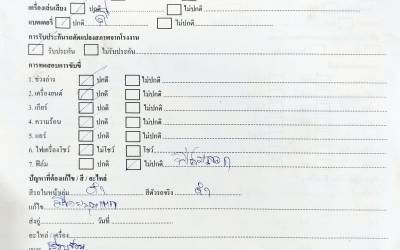 เครื่องเล่นเสียง ปกติ ไม่ปกติ
แบตเตอรี่ ปกติ ไม่ปกติ
การรับประกันรถดัดแปลงสภาพจากโรงงาน
รับประกัน ไม่รับประกัน
การทดสอบการขับขี่
1. ช่วงล่าง ปกติ ไม่ปกติ
2. เครื่องยนต์ ปกติ ไม่ปกติ
3. เกียร์ ปกติ ไม่ปกติ
4. ความร้อน ปกติ ไม่ปกติ
5. แอร์ ปกติ ไม่ปกติ
6. ไฟเครื่องโชว์ ไม่โชว์ โชว์
7. ฟิล์ม ปกติ ไม่ปกติ
ปัญหาที่ต้องแก้ไข / สี / อะไหล่
สีรถในหน้าเล่ม ดำ สีตัวรถจริง ดำ
แก้ไข
ส่งอู่ วันที่
อะไหล่ / เครื่อง